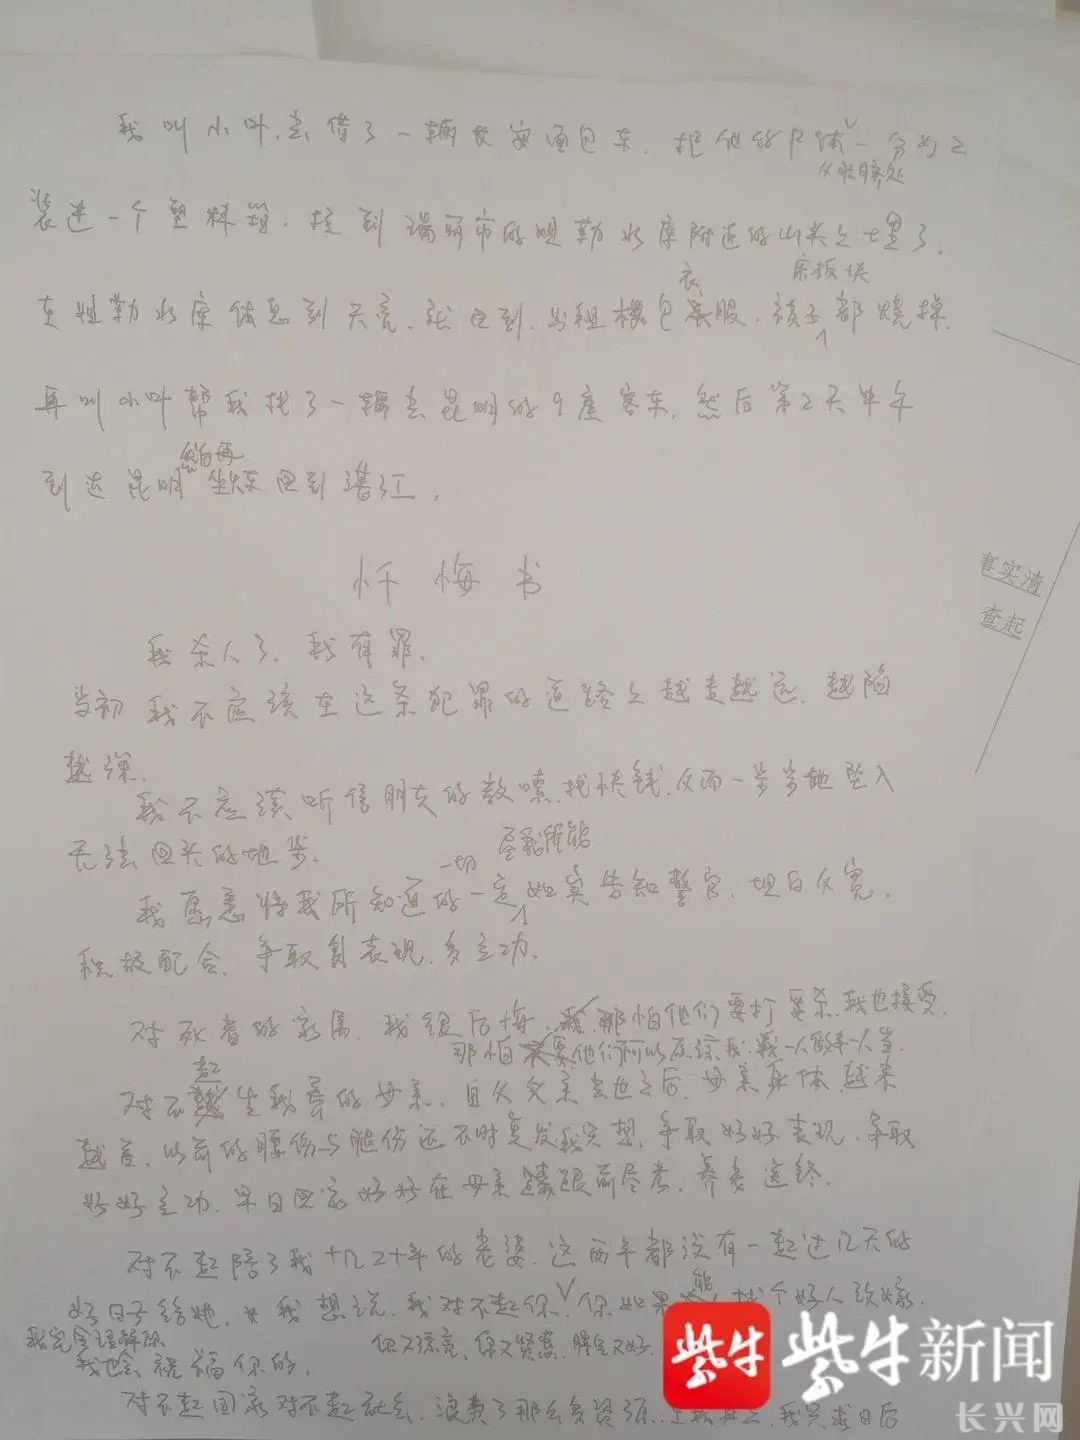 我叫小叶,去借了一辆长安面包车,把他的尸体一分为二
从肚脐处
装进一个塑料箱,拉到瑞丽市的姐勒水库附近的山头上埋了,
衣 床板块
在姐勒水库休息到天亮,就回到出租楼包裹服,被子都烧掉,
再叫小叶帮我找了一辆去昆明的9座客车,然后第2天中午
然后再
到达昆明坐车回到湛江,
忏悔书
我杀人了,我有罪,
当初我不应该在这条犯罪的道路上越走越远,越陷
越深,
我不应该听信朋友的教唆,找快钱,从而一步步地坠入
无法回头的地步,
一切 尽我所能
我愿意将我所知道的一定如实告知警官,坦白从宽,
积极配合,争取良表现,多立功,
对死者的家属,我很后悔,那怕他们要打要杀,我也接受,
那怕要他们可以原谅我,我一人做事一人当,
起
对不生我养的母亲,自从父亲去世之后,母亲身体越来
越差,以前的腰伤与腿伤还不时复发我只想,争取好好表现,争取
好好立功,早日回家好好在母亲跟前尽孝,养老送终,
对不起陪了我十几二十年的老婆,这两年都没有一起过几天的
好日子给她,我想说,我对不起你,你如果能找个好人改嫁,
我完全理解你 你又漂亮,你又贤惠,脾气又好,
我也会祝福你的,
对不起国家对不起社会,浪费了那么多资源,我只求日后
事实清
查起
紫牛 紫牛新闻
长兴网